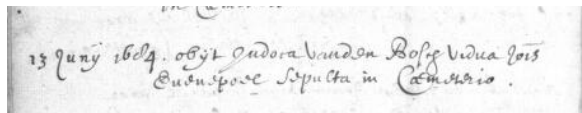 in Cœmeterio
13 Junÿ 1684. obÿt Judoca vanden Bosch vidua Jois
Euenepoel sepulta in Cœmeterio.